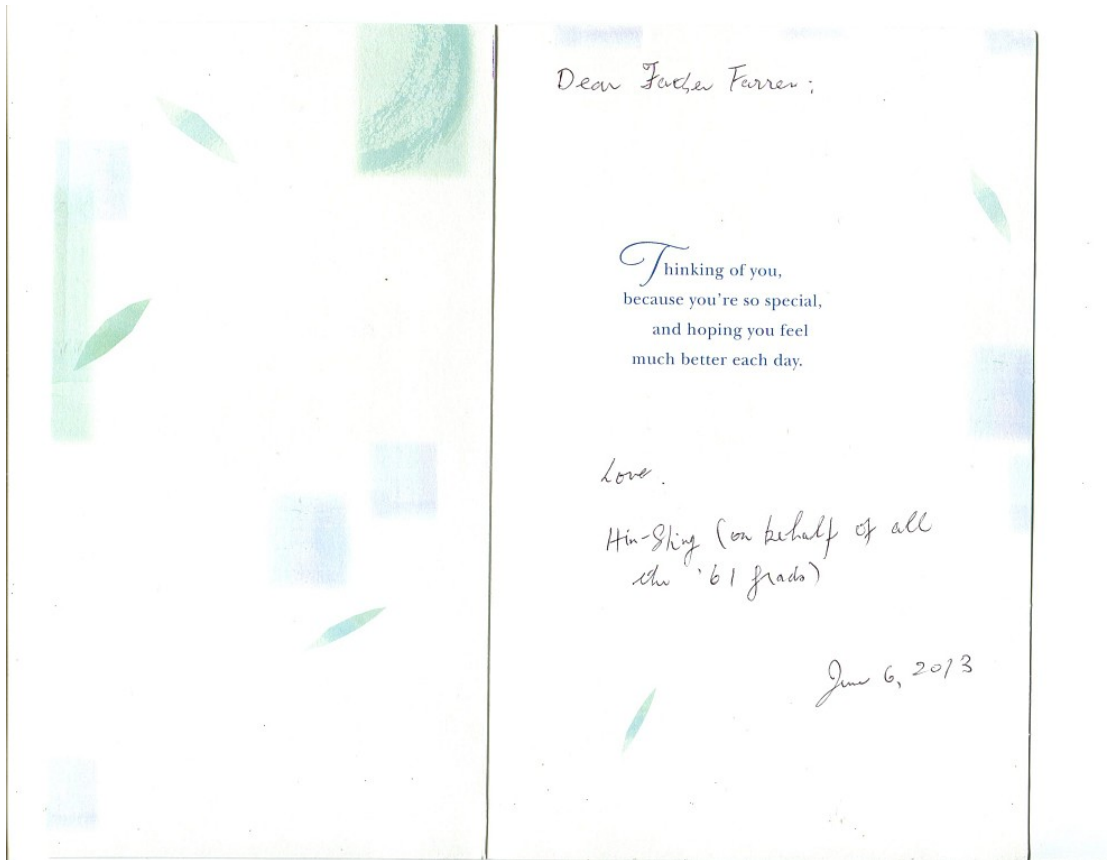 Dear Father Farren:
Thinking of you,
because you're so special,
and hoping you feel
much better each day.
Love.
Hin-Shing (on behalf of all
the '61 grads)
June 6, 2013